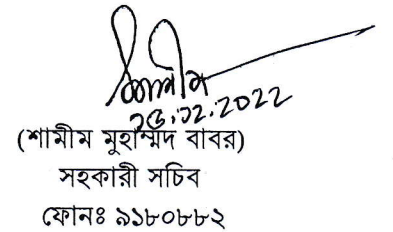 ২৬.১২.2022
(শামীম মুহাম্মদ বাবর)
সহকারী সচিব
ফোনঃ ৯১৮০৮৮২